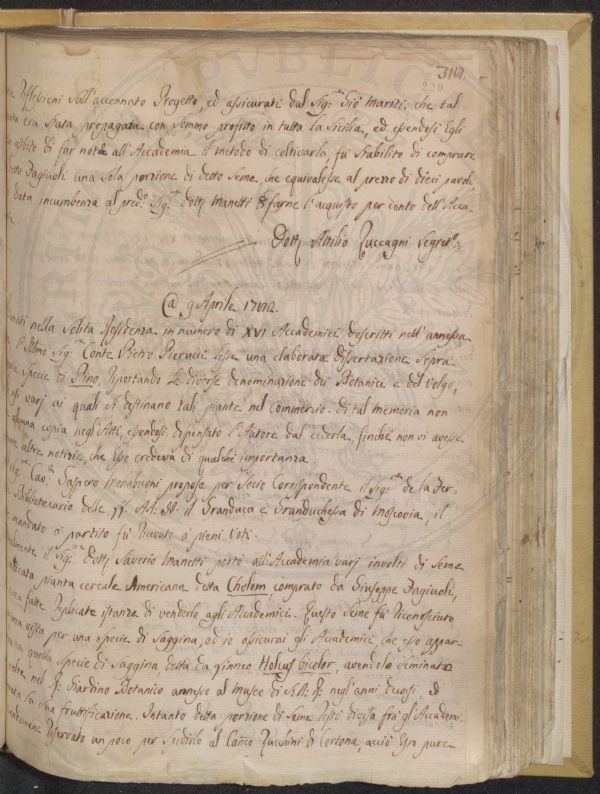 317.
220
Riflessioni sull'accennato Progetto, ed assicurati dal Sig.re Gio: Mariti, che tal
era stata propagata con sommo profitto in tutta la Sicilia, ed essendosi Egli
esibito di far note all'Accademia il metodo di coltivarla, fù stabilito di comprare
Fagiuoli una sola porzione di detto seme, che equivalesse al prezzo di dieci pavoli,
data incumbenza al pred.o Sig.re Dott. Manetti di farne l'acquisto per conto dell'Acca-
Dott. Attilio Zuccagni Segret.o
@ 9 Aprile 1772.
nella solita Residenza in numero di XVI Accademici descritti nell'annessa
l'Illmo Sig.re Conte Pietro Pierucci lesse una elaborata dissertazione sopra
specie di Pino, riportando le diverse denominazione dei Botanici e del volgo,
usi varj ai quali si destinano tali piante nel commercio. di tal memoria non
alcuna copia negl'Atti, essendosi dispensato l'Autore dal cederla, finché non vi avesse
altre notizie che esso credeva di qualche importanza.
Sig.re Cav.re Gaspero Menabuoni propose per Socio Corrispondente il Sig.re de la Fer-
Bibliotecario delle AA. II. il Granduca e Granduchessa di Moscovia, il
mandato a partito fù ricevuto a pieni voti.
il Sig.re Dott. Saverio Manetti portò all'Accademia varj involti di seme
pianta cereale Americana detta Cholom, comprato da Giuseppe Fagiuoli,
fatte replicate istanze di venderlo agli Accademici. Questo seme fù riconosciuto
vista per una specie di Saggina, ed io assicurai gli Accademici, che esso appar-
quella specie di saggina detta da Linneo Holcus bicolor, avendolo seminato
nel R. Giardino Botanico annesso al Museo di S.A.R. negli anni decorsi, ed
la sua fruttificazione. Intanto detta porzione di seme restò divisa frà gl'Accademi-
riservato un poco per spedirlo al Can.co Zucchini di Cortona, acciò Egro pure